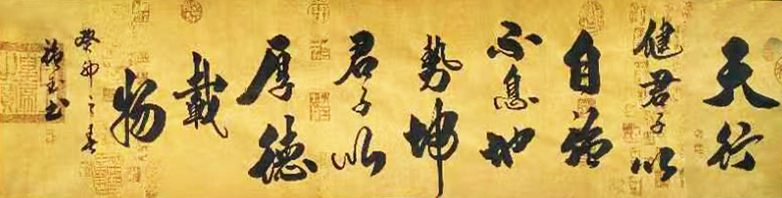 天行
健君子以
自强
不息地
勢坤
君子以
厚德
載
物
癸卯之春
玉书